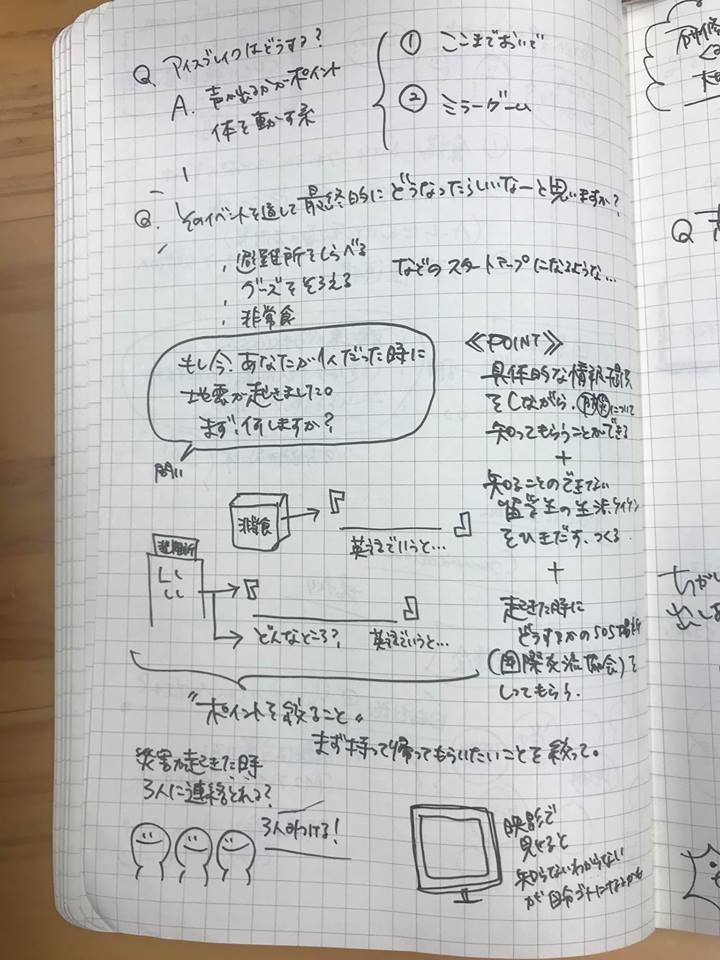 Q アイスブレイクはどうする?
A. 声が出るかがポイント
体を動かす系
① ここまでおいで
② ミラーゲーム
Q. そのイベントを通して最終的にどうなったらいいなーと思いますか?
避難所をしらべる
グーズをそろえる
非常食
などのスタートアップになるような...
もし今、あなたが1人だった時に
地震が起きました。
まず、何しますか?
問い
≪POINT≫
具体的な情報提供
をしながら、防災について
知ってもらうことができる
+
知ることのできてない
留学生の生活
をひきだす、つくる
+
起きた時に
どうするかのSOS場所
(国際交流協会)を
しってもらう.
非常食
『 』
英語でいうと...
避難所
『 』
どんなところ? 英語でいうと...
"ポイントを絞ること"
まず持って帰ってもらいたいことを絞って。
災害が起きた時
3人に連絡とれる?
3人みつける!
映影で
見せると
知らないわからない
が自分ゴトになるかも
Q
ちがい
出しあ